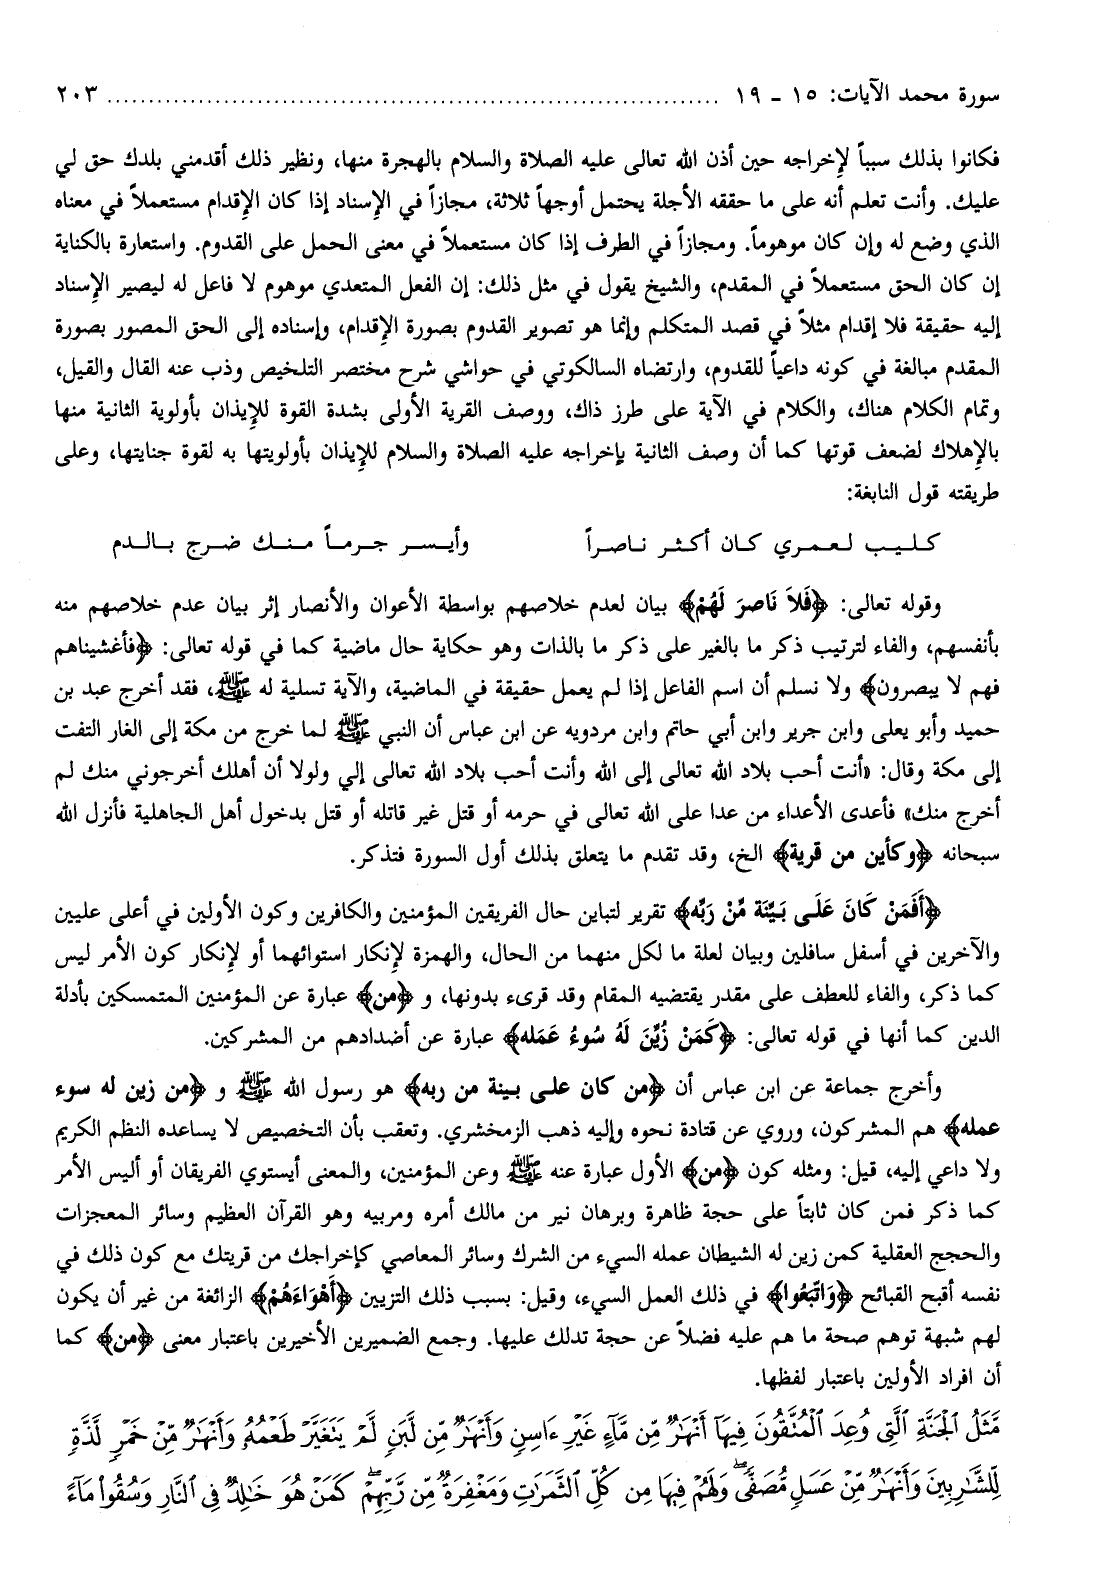 سورة محمد الآيات: ١٥ - ١٩ ........................................................................... ٢٠٣
فكانوا بذلك سبباً لإخراجه حين أذن الله تعالى عليه الصلاة والسلام بالهجرة منها، ونظير ذلك أقدمني بلدك حق لي
عليك. وأنت تعلم أنه على ما حققه الأجلة يحتمل أوجهاً ثلاثة، مجازاً في الإسناد إذا كان الإقدام مستعملاً في معناه
الذي وضع له وإن كان موهوماً. ومجازاً في الطرف إذا كان مستعملاً في معنى الحمل على القدوم. واستعارة بالكناية
إن كان الحق مستعملاً في المقدم، والشيخ يقول في مثل ذلك: إن الفعل المتعدي موهوم لا فاعل له ليصير الإسناد
إليه حقيقة فلا إقدام مثلاً في قصد المتكلم وإنما هو تصوير القدوم بصورة الإقدام، وإسناده إلى الحق المصور بصورة
المقدم مبالغة في كونه داعياً للقدوم، وارتضاه السالكوتي في حواشي شرح مختصر التلخيص وذب عنه القال والقيل،
وتمام الكلام هناك، والكلام في الآية على طرز ذاك، ووصف القرية الأولى بشدة القوة للإيذان بأولوية الثانية منها
بالإهلاك لضعف قوتها كما أن وصف الثانية بإخراجه عليه الصلاة والسلام للإيذان بأولويتها به لقوة جنايتها، وعلى
طريقته قول النابغة:
كليب لعمري كان أكثر ناصراً وأيسر جرماً منك ضرج بالدم
وقوله تعالى: ﴿فَلاَ نَاصِرَ لَهُمْ﴾ بيان لعدم خلاصهم بواسطة الأعوان والأنصار إثر بيان عدم خلاصهم منه
بأنفسهم، والفاء لترتيب ذكر ما بالغير على ذكر ما بالذات وهو حكاية حال ماضية كما في قوله تعالى: ﴿فأغشيناهم
فهم لا يبصرون﴾ ولا نسلم أن اسم الفاعل إذا لم يعمل حقيقة في الماضية، والآية تسلية له ﷺ، فقد أخرج عبد بن
حميد وأبو يعلى وابن جرير وابن أبي حاتم وابن مردويه عن ابن عباس أن النبي ﷺ لما خرج من مكة إلى الغار التفت
إلى مكة وقال: «أنت أحب بلاد الله تعالى إلى الله وأنت أحب بلاد الله تعالى إلي ولولا أن أهلك أخرجوني منك لم
أخرج منك» فأعدى الأعداء من عدا على الله تعالى في حرمه أو قتل غير قاتله أو قتل بدخول أهل الجاهلية فأنزل الله
سبحانه ﴿وكأين من قرية﴾ الخ، وقد تقدم ما يتعلق بذلك أول السورة فتذكر.
﴿أَفَمَنْ كَانَ عَلَى بَيِّنَة مِّنْ رَبِّه﴾ تقرير لتباين حال الفريقين المؤمنين والكافرين وكون الأولين في أعلى عليين
والآخرين في أسفل سافلين وبيان لعلة ما لكل منهما من الحال، والهمزة لإنكار استوائهما أو لإنكار كون الأمر ليس
كما ذكر، والفاء للعطف على مقدر يقتضيه المقام وقد قرىء بدونها، و ﴿من﴾ عبارة عن المؤمنين المتمسكين بأدلة
الدين كما أنها في قوله تعالى: ﴿كَمَنْ زُيِّنَ لَهُ سُوءُ عَمَله﴾ عبارة عن أضدادهم من المشركين.
وأخرج جماعة عن ابن عباس أن ﴿من كان على بينة من ربه﴾ هو رسول الله ﷺ و ﴿من زين له سوء
عمله﴾ هم المشركون، وروي عن قتادة نحوه وإليه ذهب الزمخشري. وتعقب بأن التخصيص لا يساعده النظم الكريم
ولا داعي إليه، قيل: ومثله كون ﴿من﴾ الأول عبارة عنه ﷺ وعن المؤمنين، والمعنى أيستوي الفريقان أو أليس الأمر
كما ذكر فمن كان ثابتاً على حجة ظاهرة وبرهان نير من مالك أمره ومربيه وهو القرآن العظيم وسائر المعجزات
والحجج العقلية كمن زين له الشيطان عمله السيء من الشرك وسائر المعاصي كإخراجك من قريتك مع كون ذلك في
نفسه أقبح القبائح ﴿وَاتَّبَعُوا﴾ في ذلك العمل السيء، وقيل: بسبب ذلك التزيين ﴿أَهْوَاءَهُمْ﴾ الزائغة من غير أن يكون
لهم شبهة توهم صحة ما هم عليه فضلاً عن حجة تدلك عليها. وجمع الضميرين الأخيرين باعتبار معنى ﴿من﴾ كما
أن افراد الأولين باعتبار لفظها.
مَّثَلُ ٱلْجَنَّةِ ٱلَّتِى وُعِدَ ٱلْمُتَّقُونَ فِيهَآ أَنْهَٰرٌ مِّن مَّآءٍ غَيْرِ ءَاسِنٍ وَأَنْهَٰرٌ مِّن لَّبَنٍ لَّمْ يَتَغَيَّرْ طَعْمُهُۥ وَأَنْهَٰرٌ مِّنْ خَمْرٍ لَّذَّةٍ
لِّلشَّٰرِبِينَ وَأَنْهَٰرٌ مِّنْ عَسَلٍ مُّصَفًّى ۖ وَلَهُمْ فِيهَا مِن كُلِّ ٱلثَّمَرَٰتِ وَمَغْفِرَةٌ مِّن رَّبِّهِمْ ۖ كَمَنْ هُوَ خَٰلِدٌ فِى ٱلنَّارِ وَسُقُوا۟ مَآءً